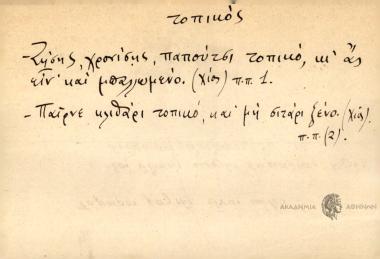 τοπικός
-Ζήσης, χρονίσης, παπούτσι τοπικό, κι' ἄς
εἶν' καί μπαλωμένο. (Χίος) π.π 1.
- Παῖρνε κριθάρι τοπικό, καί μή σιτάρι ξένο. (Χίος)
π.π. (2).
ΑΚΑΔΗΜΙΑ ΑΘΗΝΩΝ